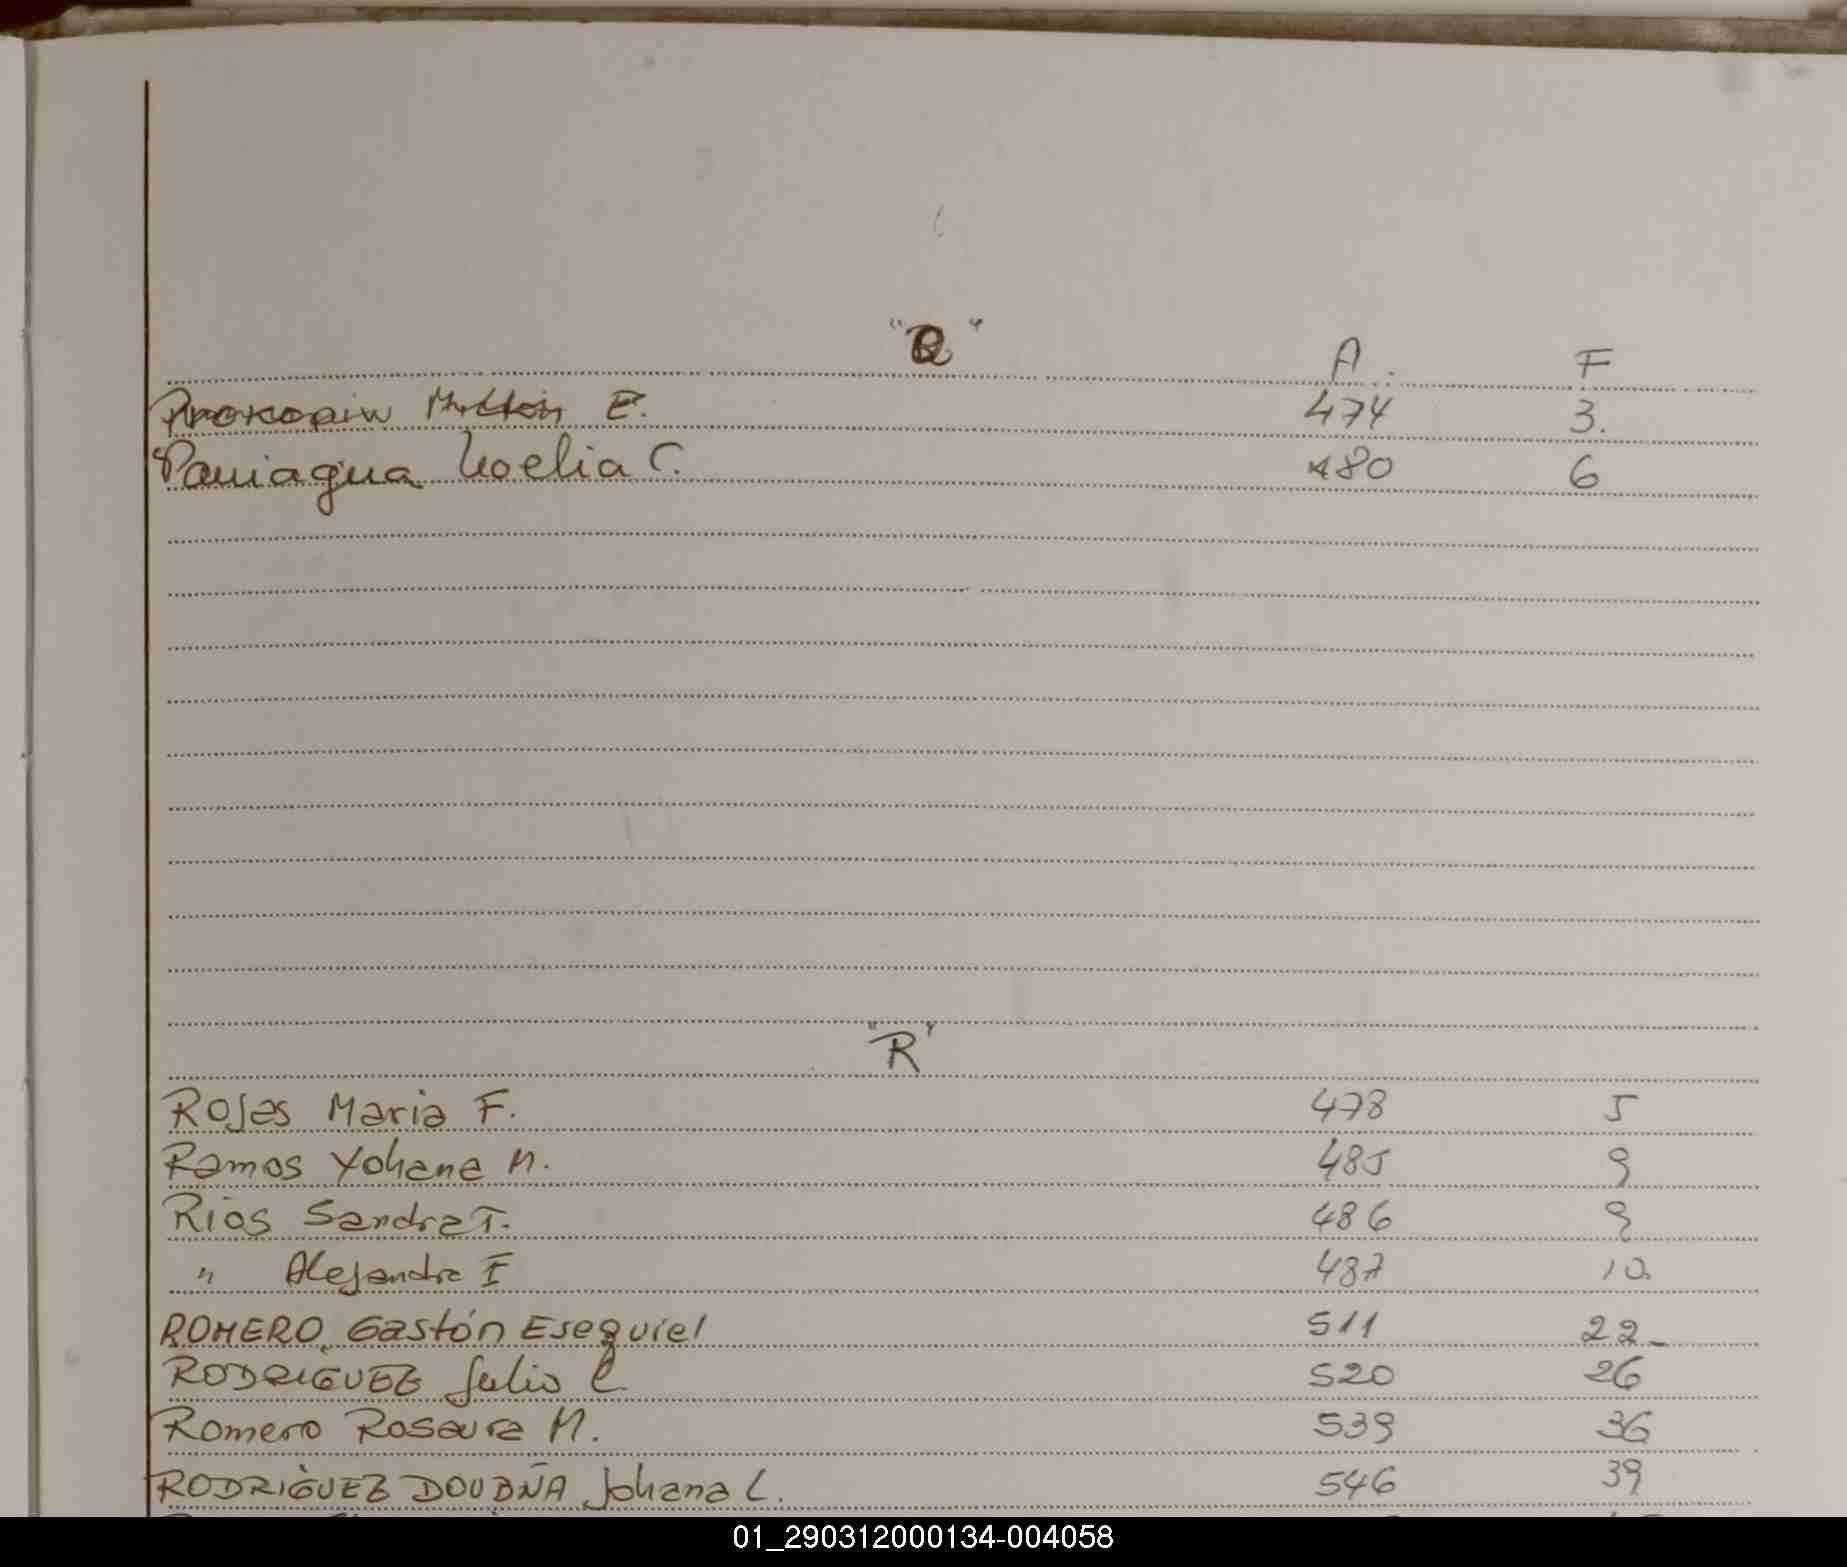 "Q"
A. F
Prokopiw Milton E. 474 3.
Paniagua Noelia C. 480 6
"R"
Rojas Maria F. 478 5
Ramos Yohana M. 485 9
Rios Sandra T. 486 9
" Alejandra I 487 10.
ROMERO Gastón Esequiel 511 22_
RODRIGUEZ Julio C. 520 26
Romero Rosaura M. 539 36
RODRIGUEZ DOUDÑA Johana L. 546 39
01_290312000134-004058